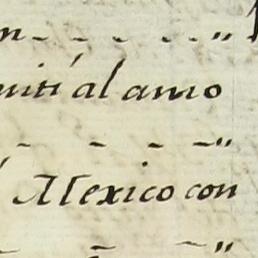 n - - - - "
mití al amo
- - - - "
Mexico con
- - "